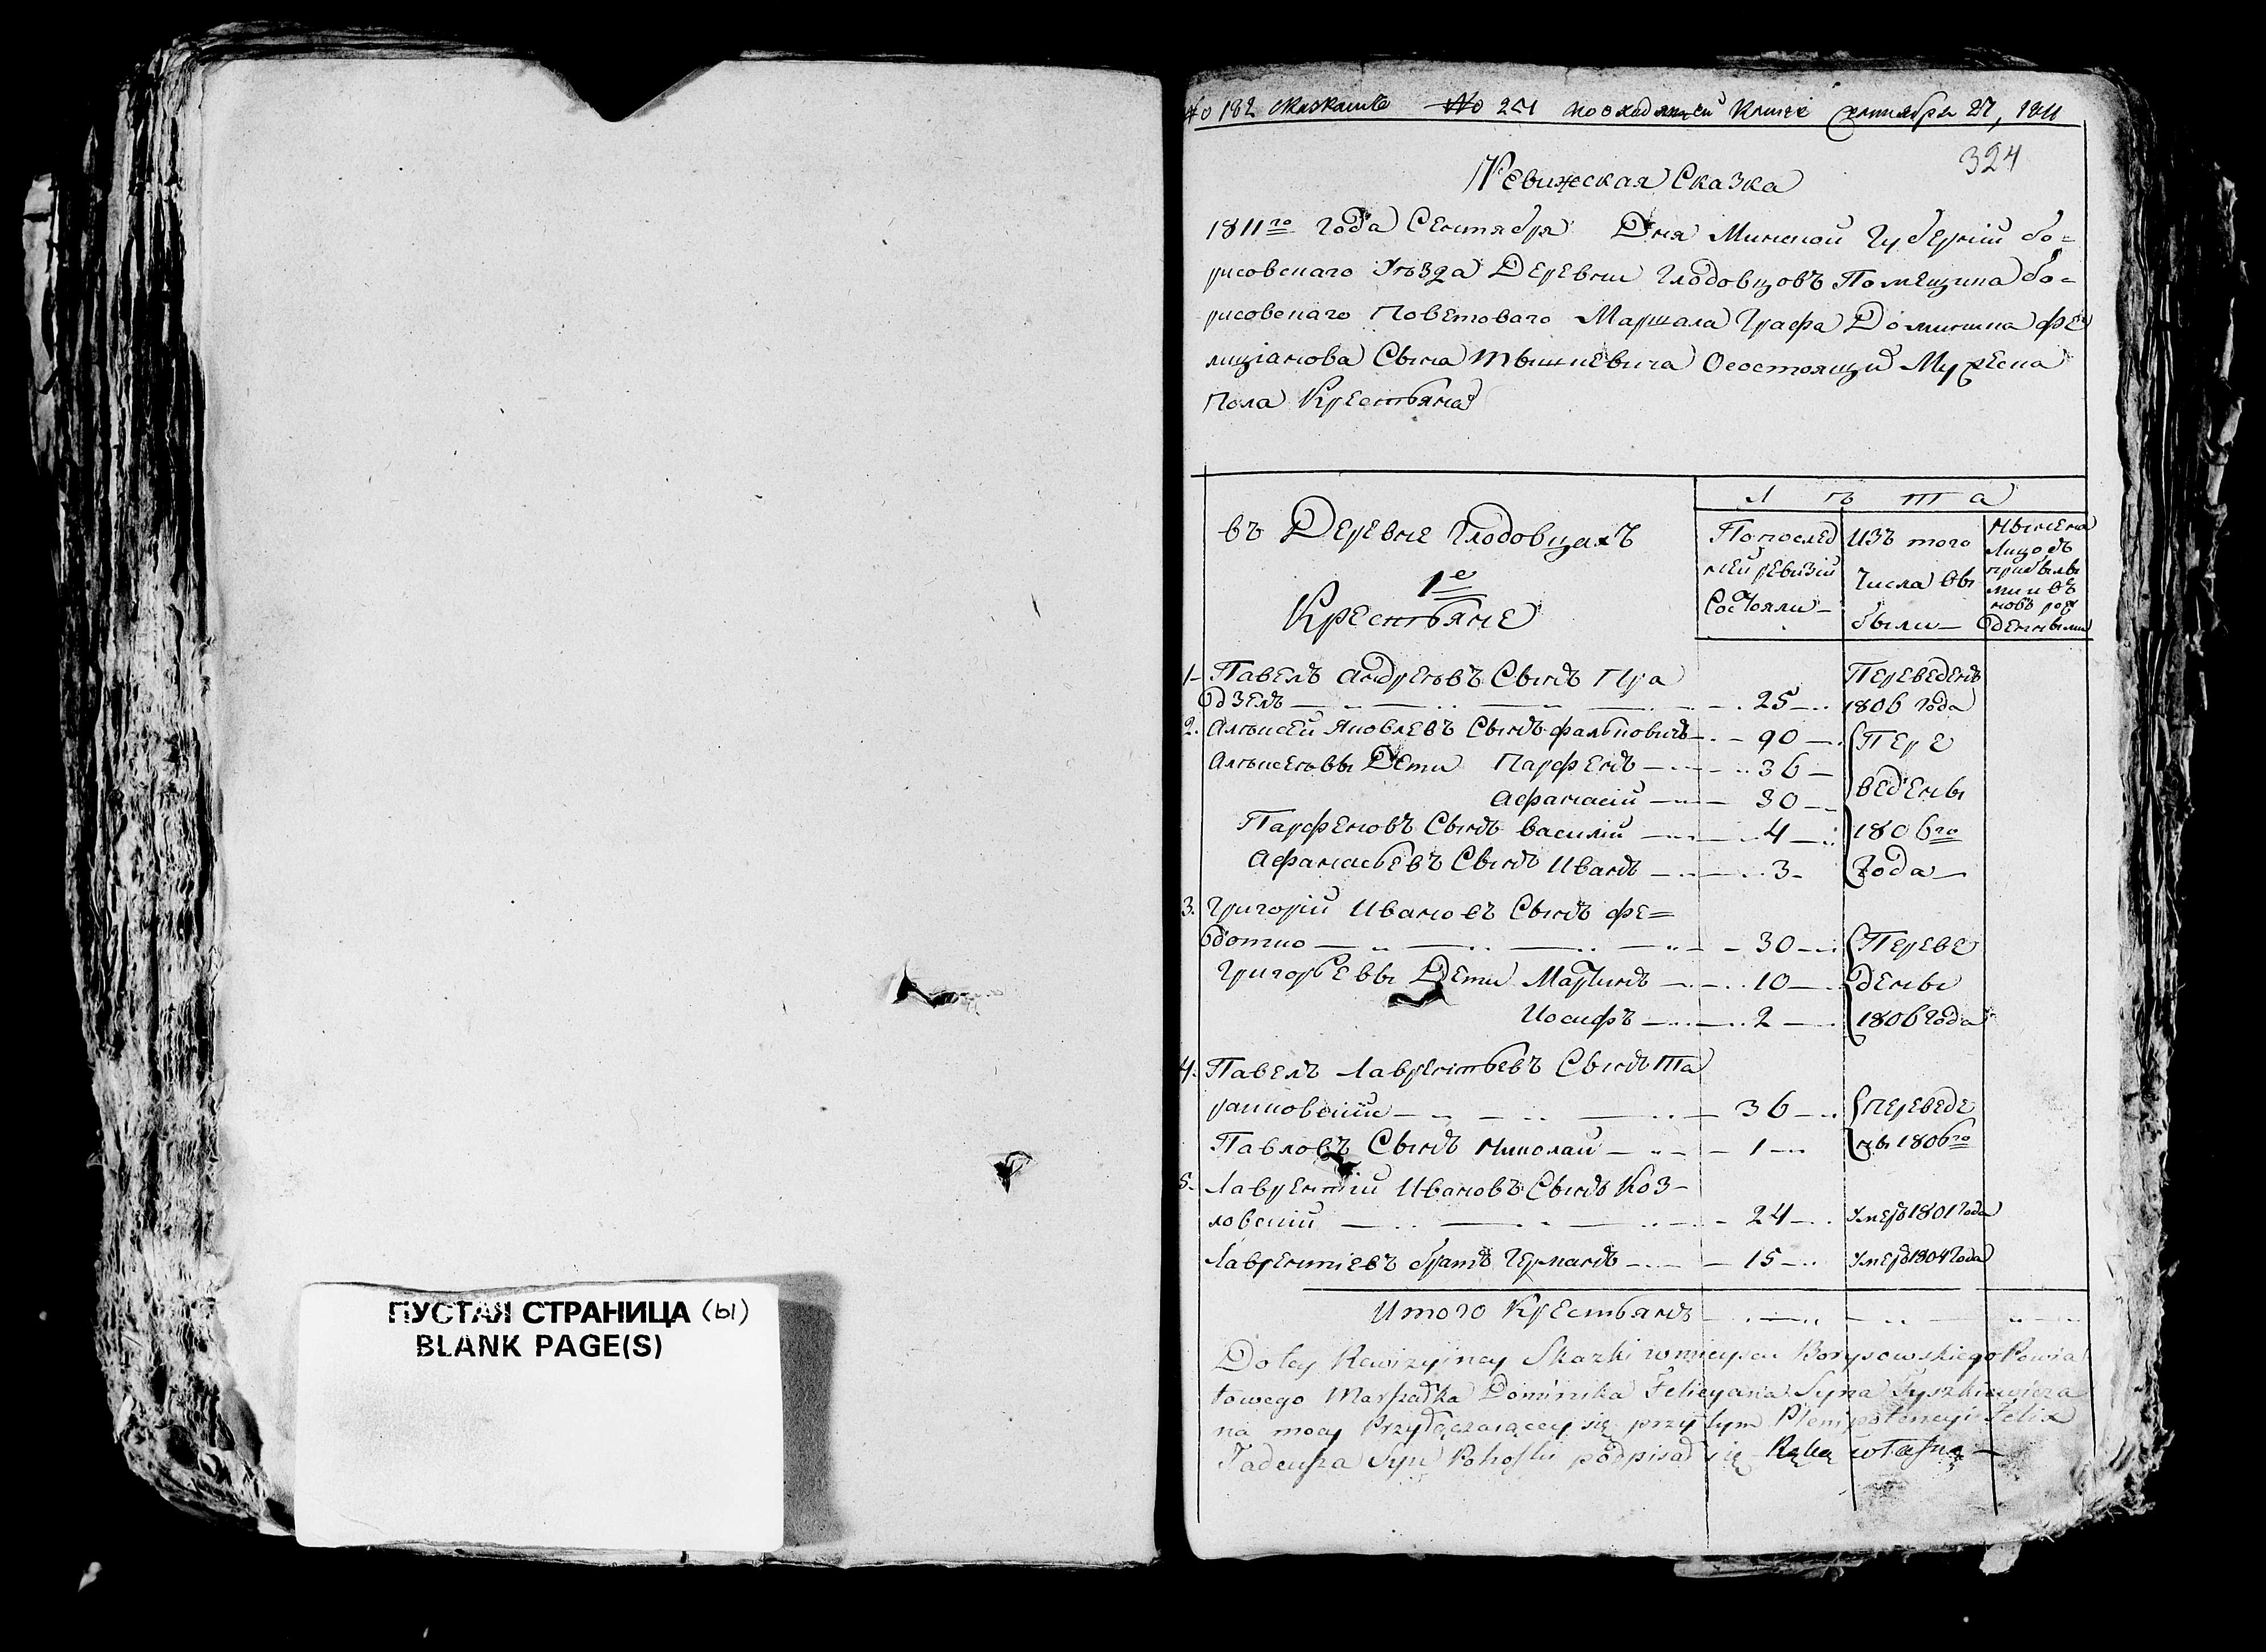 No 182 No 251 по входящей книге Сентября 27, 1811
324
Ревижская Сказка
1811го года Сентября Дня Минской Губернiи Бо=
рисовскаго Уезда Деревни Глодовщовъ Помещика Бо=
рисовскаго Поветоваго Маршала Графа Доминика Фе
лицiанова Сына Тышкевича О состоящи Мужеска
Пола Крестьянъ
Лѣта
въ Деревне Глодовщахъ
1е
Крестьяне
По послед
ней ревизiи
Состояли—
Изъ того
Числа вы
были—
Ныне на
Лицо съ
прибылы
ми и въ
новъ рож
денными
1- Павелъ Андреювъ Сынъ Пра
дзелъ — 25 — Переведенъ
1806 Года
2. Алексей Яковлевъ Сынъ Фальковичъ — 90 — Пере
Алексеювы Дети Парфенъ — 36 —
Афанасiй — 30 — ведены
Парфеновъ Сынъ Василiй — 4 — 1806го
Афанасьевъ Сынъ Иванъ — 3 - Года —
3. Григорiй Ивановъ Сынъ Фе=
дотко — 30 — Переве
Григорьевы Дети Мартинъ — 10 — дены
Иосифъ — 2 — 1806 Года
4. Павелъ Лаврентьевъ Сынъ Та
раиковскiй — 36 — переведе
Павловъ Сынъ Николай — 1 — ны 1806го
5- Лаврентiй Ивановъ Сынъ Коз-
ловскiй — 24 — Умеръ 1801 Года
Лаврентiевъ братъ Германъ — 15 — Умеръ 1804 Года
Итого Крестьянъ
Do tey Rewizyiney Skazki w mieyscu Borysowskiego Powia
towego Marszałka Dominika Felicyana Syna Tyszkiewicza
na mocy Przyłączaiącey się przy tym Plenipotencyi Felix
Tadeusza Syn podpisał się Ręką własną —
ПУСТАЯ СТРАНИЦА (ы)
BLANK PAGE(S)